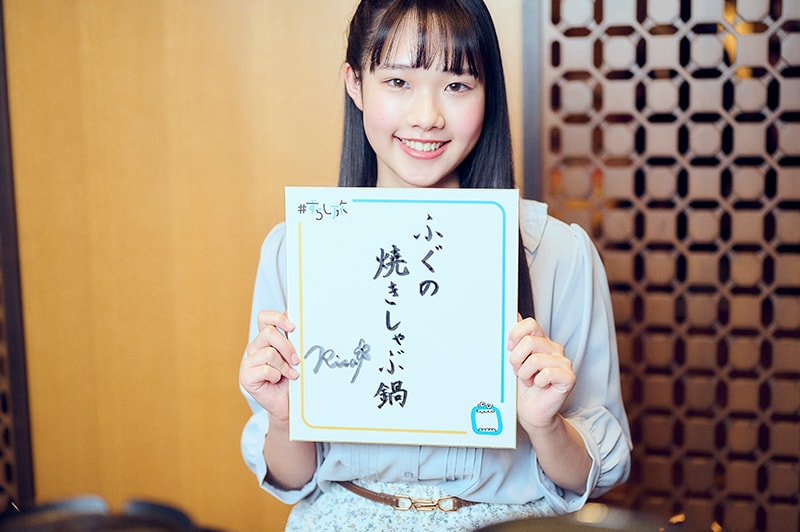 #ずらし旅
ふぐの
焼きしゃぶ鍋
Rica